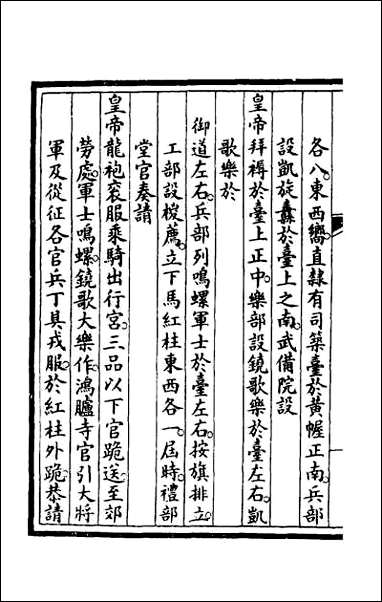 各八東西嚮直隸有司築臺於黃幄正南兵部
設凱旋纛於臺上之南武備院設
皇帝拜褥於臺上正中樂部設鐃歌樂於臺左右凱
歌樂於
御道左右兵部列鳴螺軍士於臺左右按旗排立
工部設椶薦立下馬紅柱東西各一屆時禮部
堂官奏請
皇帝龍袍袞服乘騎出行宮三品以下官跪送至郊
勞處軍士鳴螺鐃歌大樂作鴻臚寺官引大將
軍及從征各官兵丁具戎服於紅柱外跪恭請